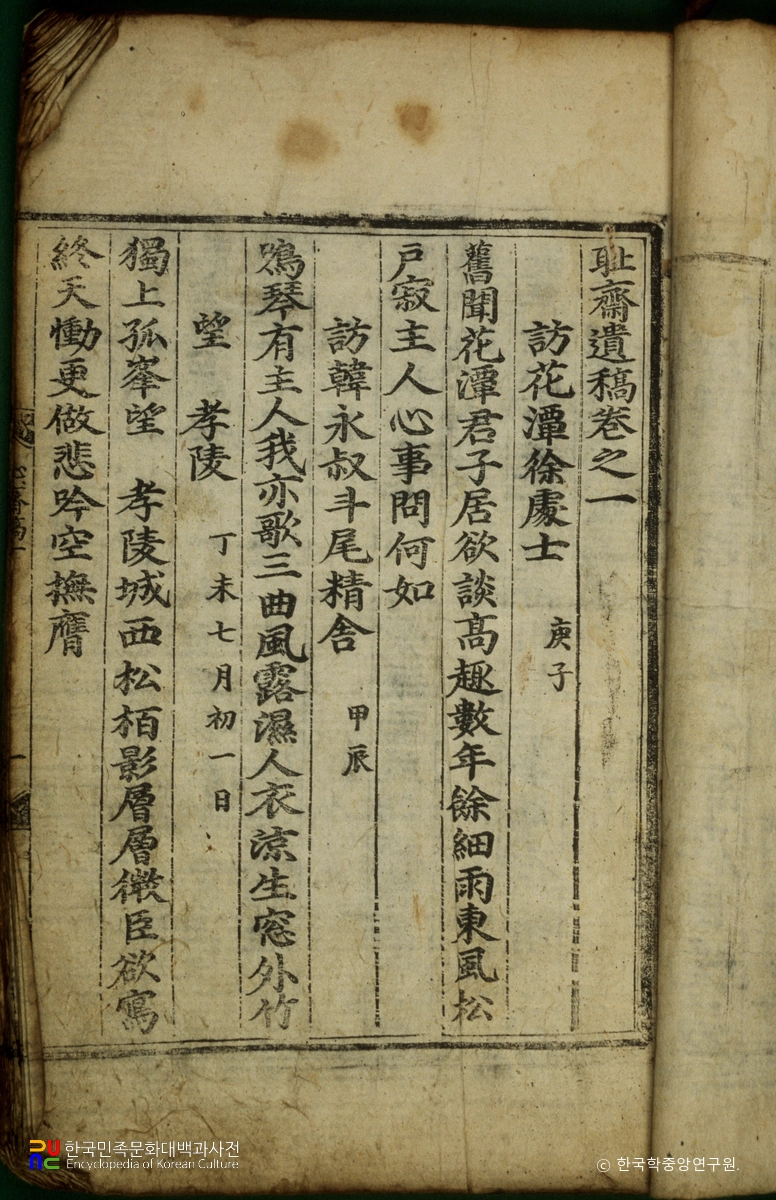 耻齋遺稿卷之一
訪花潭徐處士 庚子
舊聞花潭君子居欲談高趣數年餘細雨東風松
戶寂主人心事問何如
訪韓永叔斗尾精舍 甲辰
鳴琴有主人我亦歌三曲風露濕人衣凉生窓外竹
望 孝陵 丁未七月初一日
獨上孤峯望 孝陵城西松栢影層層微臣欲寫
終天慟更做悲吟空撫膺
한국민족문화대백과사전
Encyclopedia of Korean Culture
© 한국학중앙연구원.